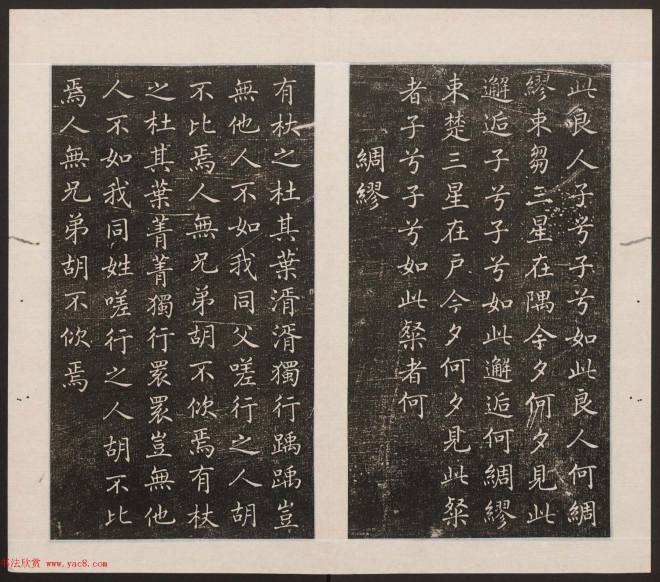 此良人子兮子兮如此良人何綢
繆束芻三星在隅今夕何夕見此
邂逅子兮子兮如此邂逅何綢繆
束楚三星在戶今夕何夕見此粲
者子兮子兮如此粲者何
綢繆
有杕之杜其葉湑湑獨行踽踽豈
無他人不如我同父嗟行之人胡
不比焉人無兄弟胡不佽焉有杕
之杜其葉菁菁獨行睘睘豈無他
人不如我同姓嗟行之人胡不比
焉人無兄弟胡不佽焉
书法欣赏 www.yac8.com